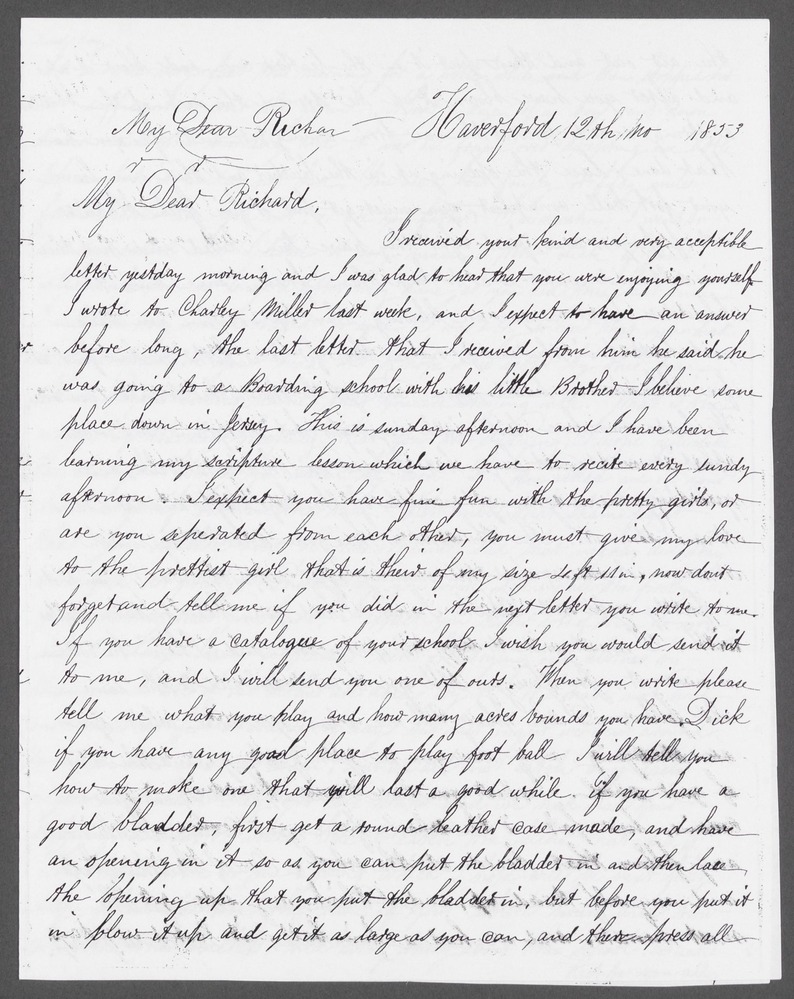 My Dear Richar Haverford 12th mo 1853
My Dear Richard.
I received your kind and very acceptible
letter yestday morning and I was glad to hear that you were enjoying yourself
I wrote to Charley Miller last week, and I expect to have an answer
before long, the last letter that I received from him he said he
was going to a Boarding school with his little Brother I believe some
place down in Jersey. This is sunday afternoon and I have been
learning my scripture lesson which we have to recite every sundy
afternoon. I expect you have fine fun with the pretty girls, or
are you seperated from each other, you must give my love
to the prettist girl that is their of my size 4 ft 11 in, now dont
forget and tell me if you did in the next letter you write to me.
If you have a catalogue of your school I wish you would send it
to me, and I will send you one of ours. When you write please
tell me what you play and how many acres bounds you have. Dick
if you have any good place to play foot ball I will tell you
how to make one that will last a good while. if you have a
good bladder, first get a round leather case made, and have
an opening in it so as you can put the bladder in and then lace
the opening up that you put the bladder in, but before you put it
in blow it up and get it as large as you can, and then press all